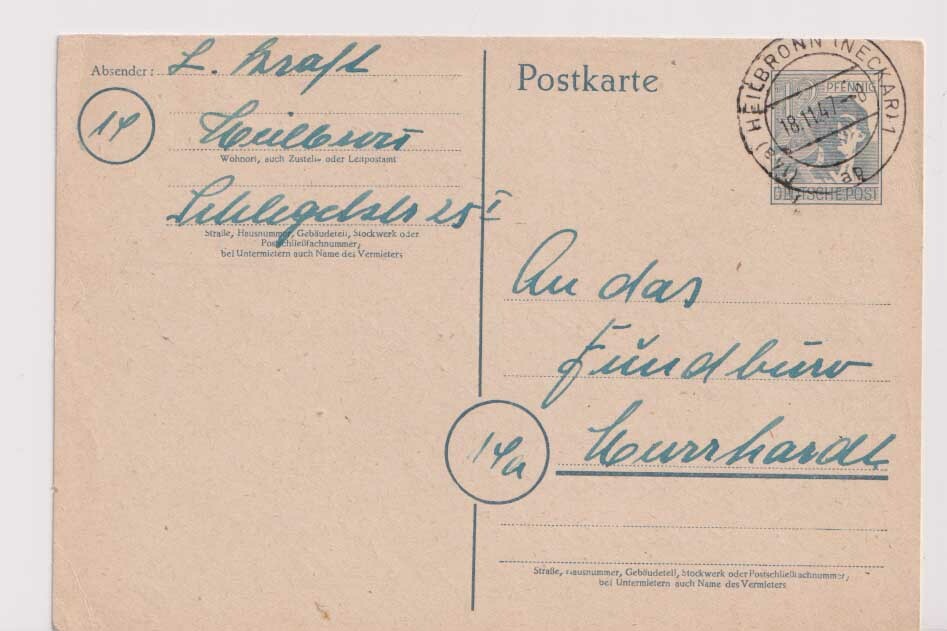 Absender: L. Kraft
14
Heilbronn
Wohnort, auch Zustell- oder Leitpostamt
Schlegelstr 25 I
Straße, Hausnummer, Gebäudeteil, Stockwerk oder
Postschließfachnummer,
bei Untermietern auch Name des Vermieters
Postkarte
(14a) HEILBRONN (NECKAR) 1
18.11.47.-8
ab
12 PFENNIG
DEUTSCHE POST
An das
Fundbüro
Murrhardt
14a
Straße, Hausnummer, Gebäudeteil, Stockwerk oder Postschließfachnummer,
bei Untermietern auch Name des Vermieters